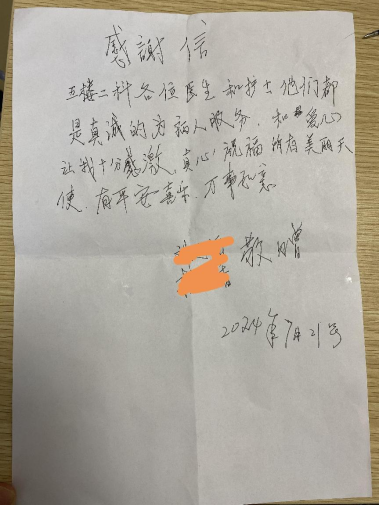 感謝信
五楼二科各位医生和护士他们都
是真诚的为病人服务、和爱心
让我十分感激、真心祝福所有美丽天
使、有平安喜乐、万事如意
敬赠
2024年7月21号